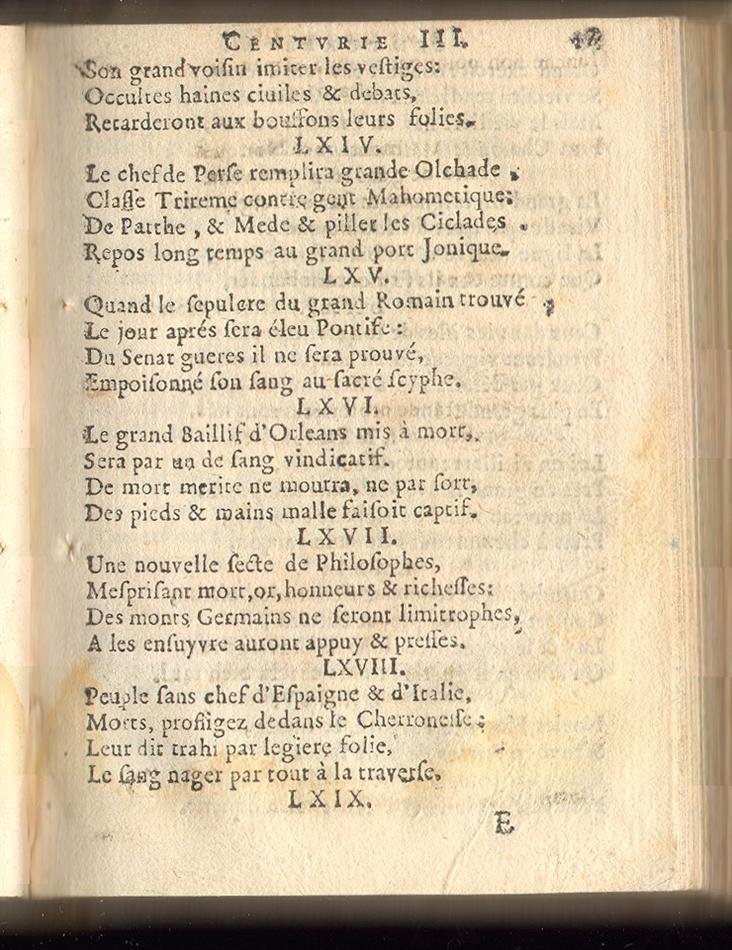 CENTVRIE III.
Son grand voisin imiter les vestiges:
Occultes haines ciuiles & debats,
Retarderont aux bouffons leurs folies.
LXIV.
Le chef de Perse remplira grande Olchade,
Classe Trireme contre gent Mahometique:
De Patthe, & Mede & piller les Ciclades.
Repos long temps au grand port Jonique.
LXV.
Quand le sepulcre du grand Romain trouvé,
Le jour aprés sera éleu Pontife:
Du Senat gueres il ne sera prouvé,
Empoisonné son sang au sacré scyphe.
LXVI.
Le grand Baillif d'Orleans mis à mort,
Sera par un de sang vindicatif.
De mort merite ne mourra, ne par sort,
Des pieds & mains malle faisoit captif.
LXVII.
Une nouvelle secte de Philosophes,
Mesprisant mort, or, honneurs & richesses:
Des monts Germains ne seront limitrophes,
A les ensuyvre auront appuy & presses.
LXVIII.
Peuple sans chef d'Espaigne & d'Italie,
Morts, profligez dedans le Cherronesse:
Leur dit trahi par legiere folie,
Le sang nager par tout à la traverse.
LXIX.
E